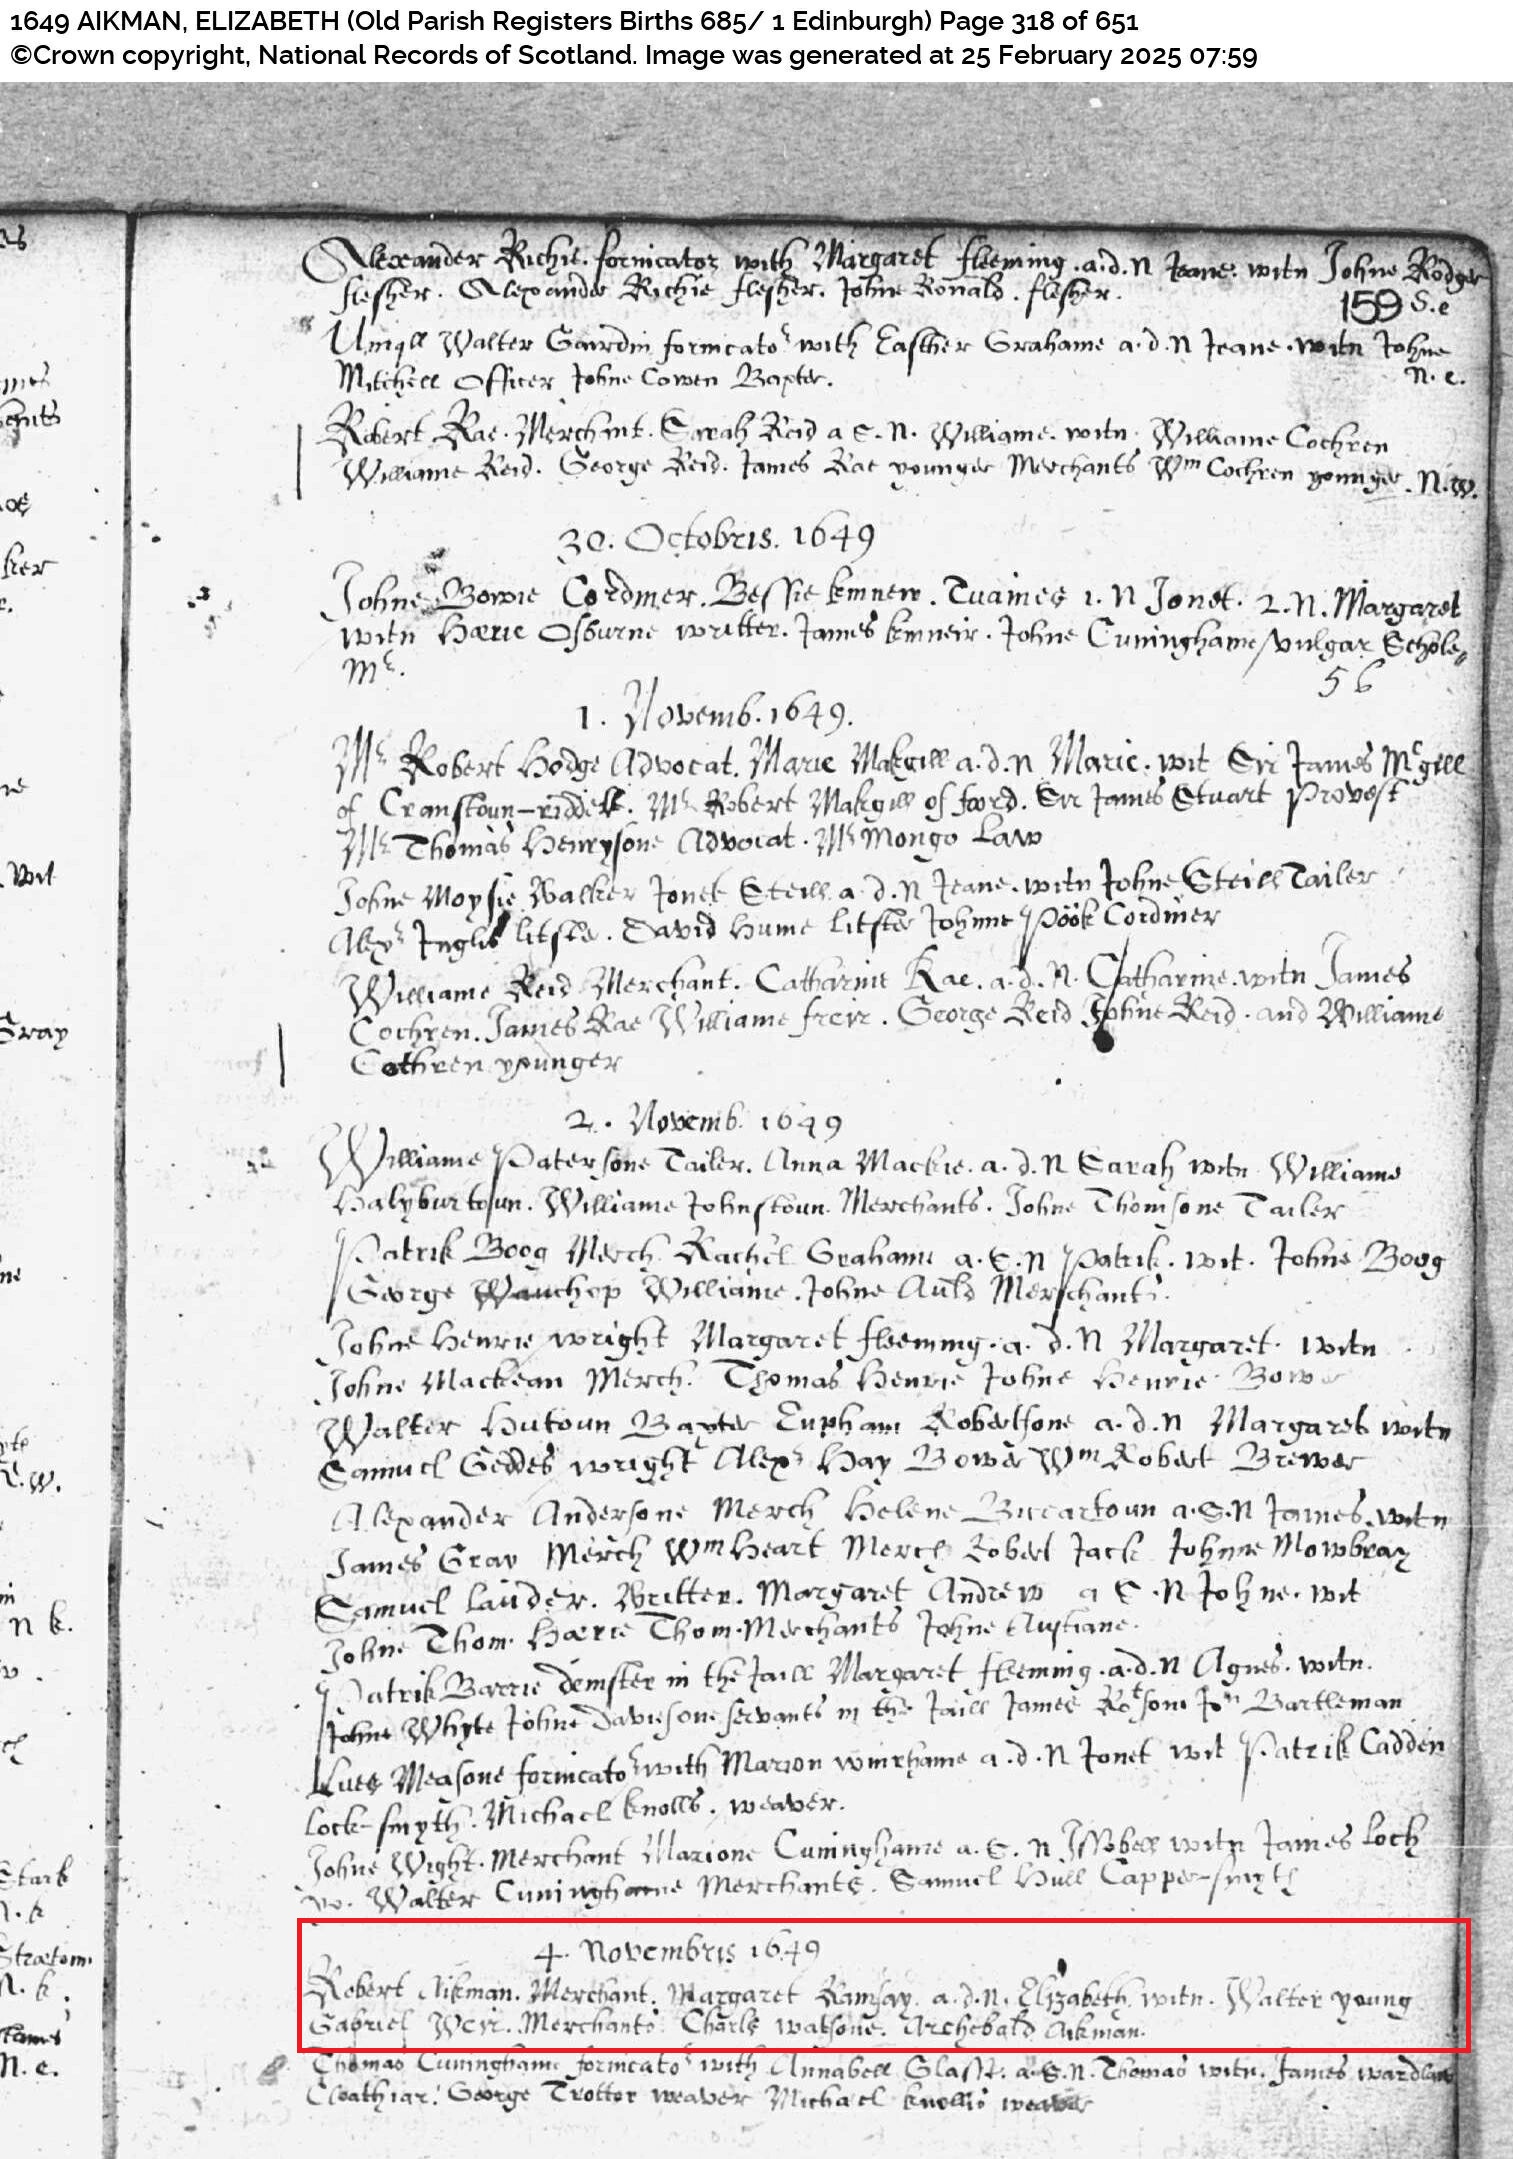 1649 AIKMAN, ELIZABETH (Old Parish Registers Births 685/ 1 Edinburgh) Page 318 of 651
©Crown copyright, National Records of Scotland. Image was generated at 25 February 2025 07:59
Alexander Richie. fornicator with Margaret fleeming. a.d.N Jeane. witn Johne Rodger
flesher. Alexander Richie flesher. Johne Ronald. flesher. S.e
159
Umqll Walter Gairdin fornicator with Easther Grahame a.d.N Jeane. witn Johne
Mitchell Officer Johne Cowen Baxter. N.e.
Robert Rae. Merchint. Sarah Reid a S.N. Williame. witn. Williame Cochren
Williame Reid. George Reid. James Rae younger Merchants Wm Cochren younger. N.W.
30. Octobris. 1649
Johne Bowie Cordiner. Bessie kinnew. Twaines 1. N Jonet. 2. N. Margaret
witn Harie Osburne writter. James kinneir. Johne Cuninghame vulgar Schole
Mr.
56
1. Novemb. 1649.
Mr Robert Hodge Advocat. Marie Makgill a.d.N Marie. wit Sir James Mcgill
of Cranstoun-riddell. Mr Robert Makgill of foord. Sir James Stuart Provost
Mr Thomas Henrysone Advocat. Mr Mongo Law
Johne Moysie Walker Jonet Steill a.d.N Jeane. witn Johne Steill Tailer
Alexr Inglis litster. David Hume litster Johnne Pook Cordiner
Williame Reid Merchant. Catharine Rae. a.d.N. Catharine. witn James
Cochren. James Rae Williame freir. George Reid Johne Reid. and Williame
Cothren younger
2. Novemb. 1649
Williame Patersone Tailer. Anna Mackie. a.d.N Sarah witn Williame
Halyburtoun. Williame Johnstoun Merchants. Johne Thomsone Tailer
Patrik Boog Merch Rachel Grahame a.S.N Patrik. wit. Johne Boog
George Wauchop Williame. Johne Auld Merchants.
Johne Henrie wright Margaret fleeming. a.d.N Margaret. witn
Johne Mackean Merch. Thomas Henrie Johne Henrie Bower
Walter Hutoun Baxter Eupham Robertsone a.d.N Margaret witn
Samuel Geddes wright Alexr Hay Bower Wm Robert Brewer
Alexander Andersone Merch Helene Biccartoun a.S.N James. witn
James Gray Merch Wm Heart Merch Robert Jack Johnne Mowbray
Samuel Lauder. Writter. Margaret Andrew a S.N Johne. wit
Johne Thom. Harie Thom. Merchants Johne
Patrik Barrie demster in the Jaill Margaret fleeming. a.d.N Agnes. witn.
Johne Whyte Johne Daviesone servants in the Jaill James Rotsone Jon Bartleman
Lues Measone fornicator with Marion winrhame a.d.N Jonet wit Patrik Cadden
Lock-smyth. Michael knolls. weaver.
Johne Wight. Merchant Marione Cuninghame a.S.N Issobell witn James Loch
Walter Cuninghame Merchants. Samuel Hull Capper-smyth
4. Novembris 1649
Robert Aikman. Merchant. Margaret Ramsay. a.d.N. Elizabeth. witn. Walter young
Gabriel Weir. Merchants. Charls watsone. Archebald Aikman.
Thomas Cuninghame fornicator with Annabell Glass. a.S.N. Thomas witn. James wardlaw
Cloathiar. George Trotter weaver Michael knollis weaver